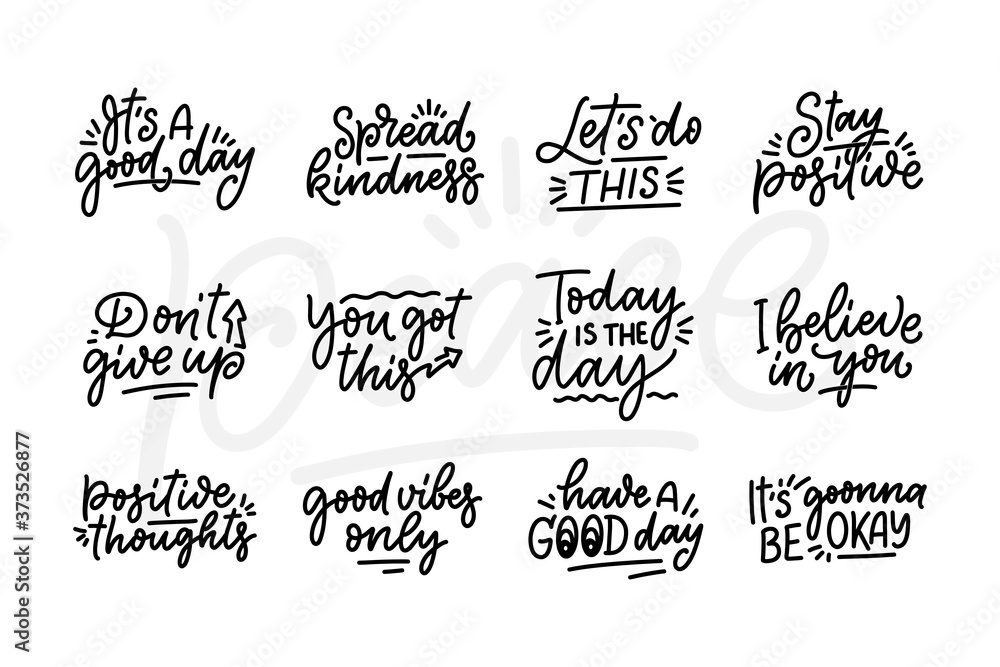 It's A
good day
Spread
kindness
Let's do
THIS
Stay
positive
Don't
give up
You got
this
Today
IS THE
day
I believe
in you
positive
thoughts
good vibes
only
have A
GOOD day
It's goonna
BE OKAY
peace
Adobe Stock | #373526877
Adobe Stock